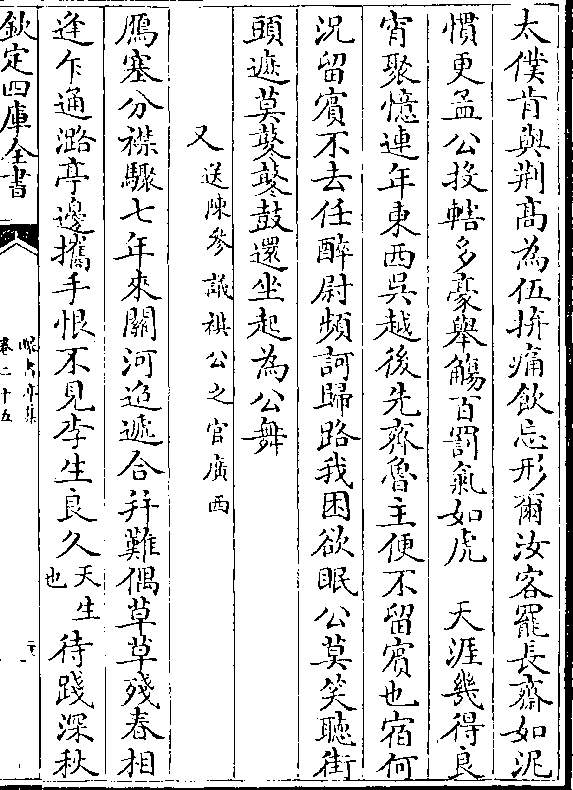 太僕肯與荆髙為伍拚痛飲忘形爾汝客罷長齋如泥
慣更孟公投轄多豪舉觴百罰氣如虎　天涯幾得良
宵聚憶連年東西吳越後先齊魯主便不留賓也宿何
況留賓不去任醉尉頻訶歸路我困欲眠公莫笑聽街
頭遮莫鼕鼕鼓還坐起為公舞
又送陳參議祺公之官廣西
鴈塞分襟驟七年來關河迢遞合并難偶草草殘春相
逢乍通潞亭邊攜手恨不見李生良久天生也待踐深秋
欽定四庫全書
卷二十五